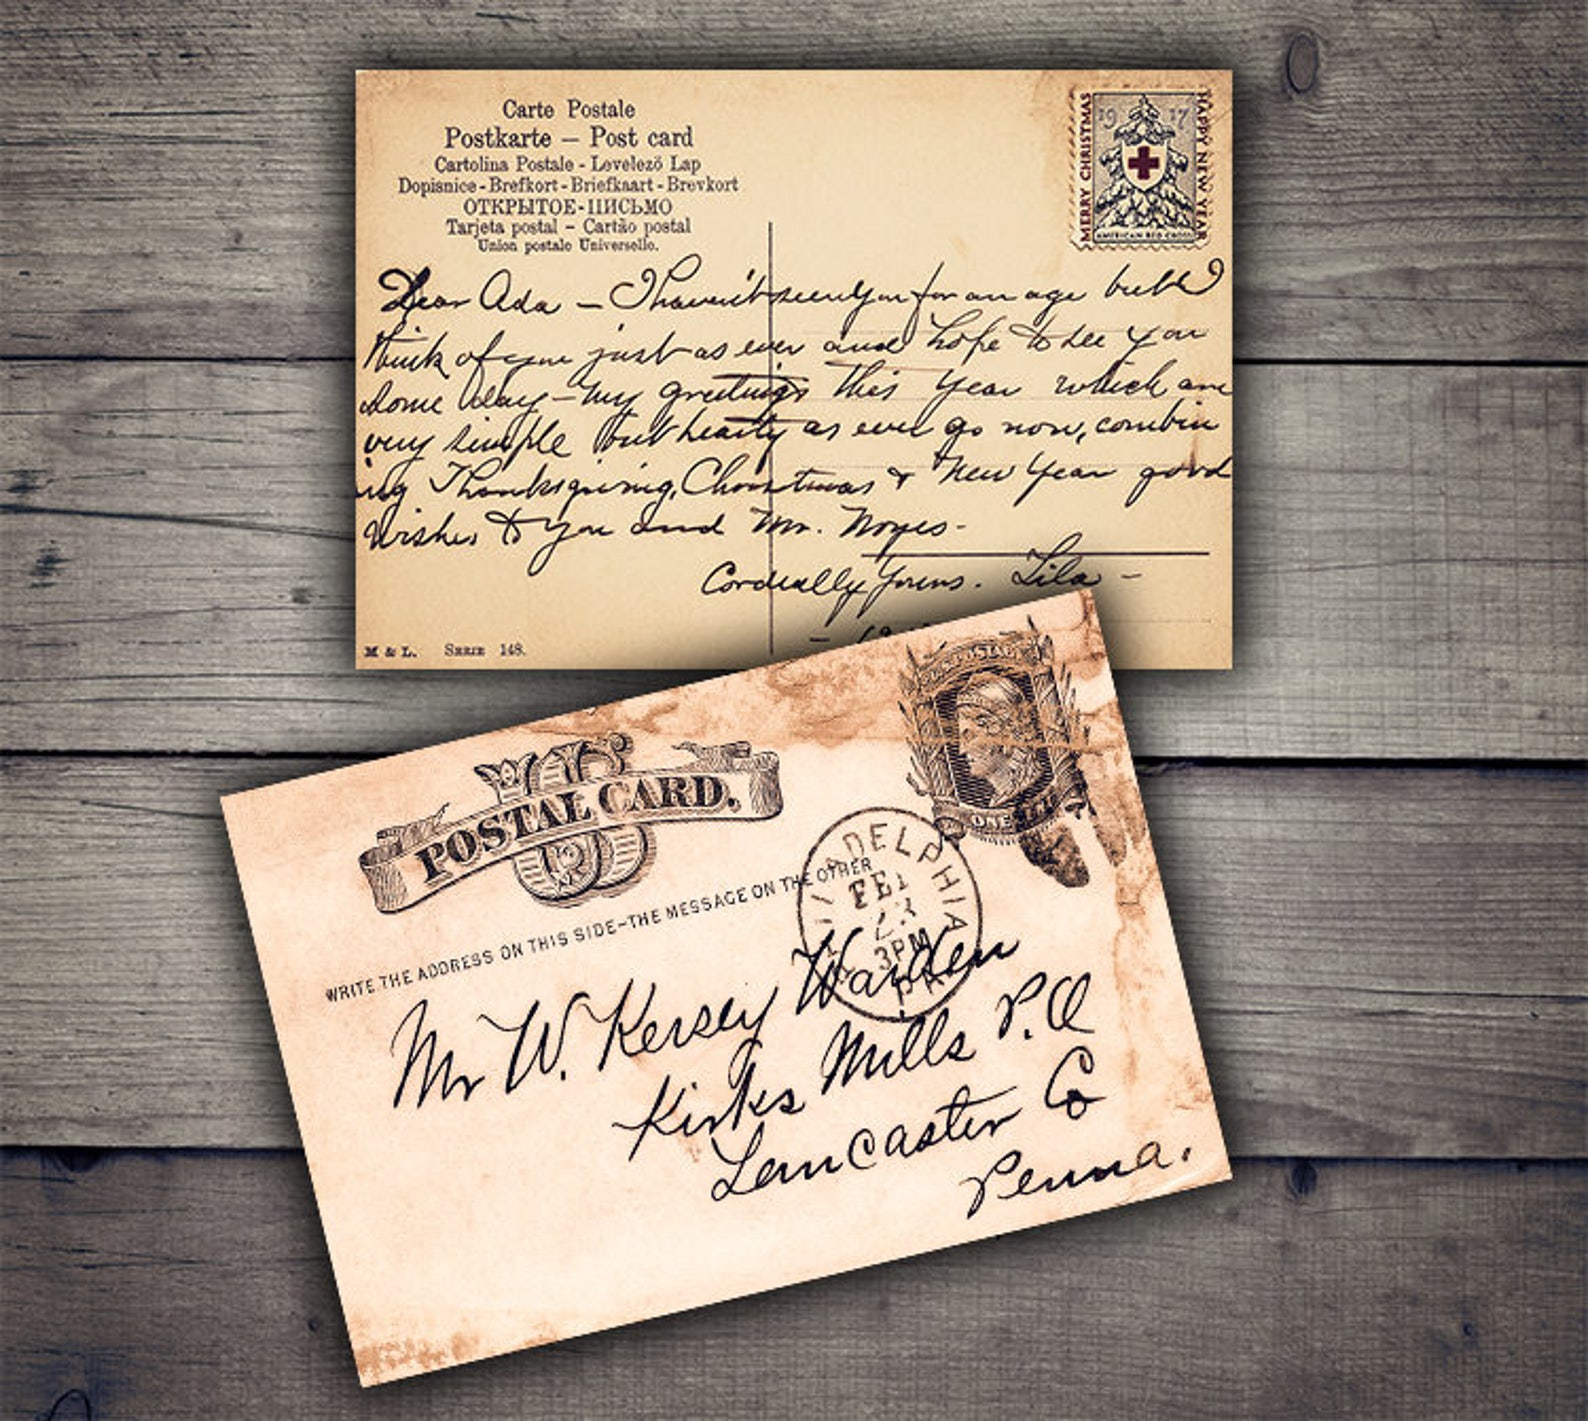 Carte Postale
Postkarte — Post card
Cartolina Postale - Levelező Lap
Dopisnice - Brefkort - Briefkaart - Brevkort
ОТКРЫТОЕ-ПИСЬМО
Tarjeta postal – Cartão postal
Union postale Universelle.
MERRY CHRISTMAS
1917
HAPPY NEW YEAR
AMERICAN RED CROSS
Dear Ada – I haven't seen you for an age but I
think of you just as ever and hope to see you
some day – my greetings this year which are
very simple but hearty as ever go now, combin
ing Thanksgiving, Christmas & New Year good
wishes to you and Mr. Noyes -
Cordially yours. Lila –
M & L. Serie 148.
U.S. POSTAGE
ONE CENT
US
POSTAL CARD.
WRITE THE ADDRESS ON THIS SIDE–THE MESSAGE ON THE OTHER
PHILADELPHIA
FEB
23
3PM
PA.
Mr W. Kersey Warden
Kirks Mills P.O
Lancaster Co
Penna.